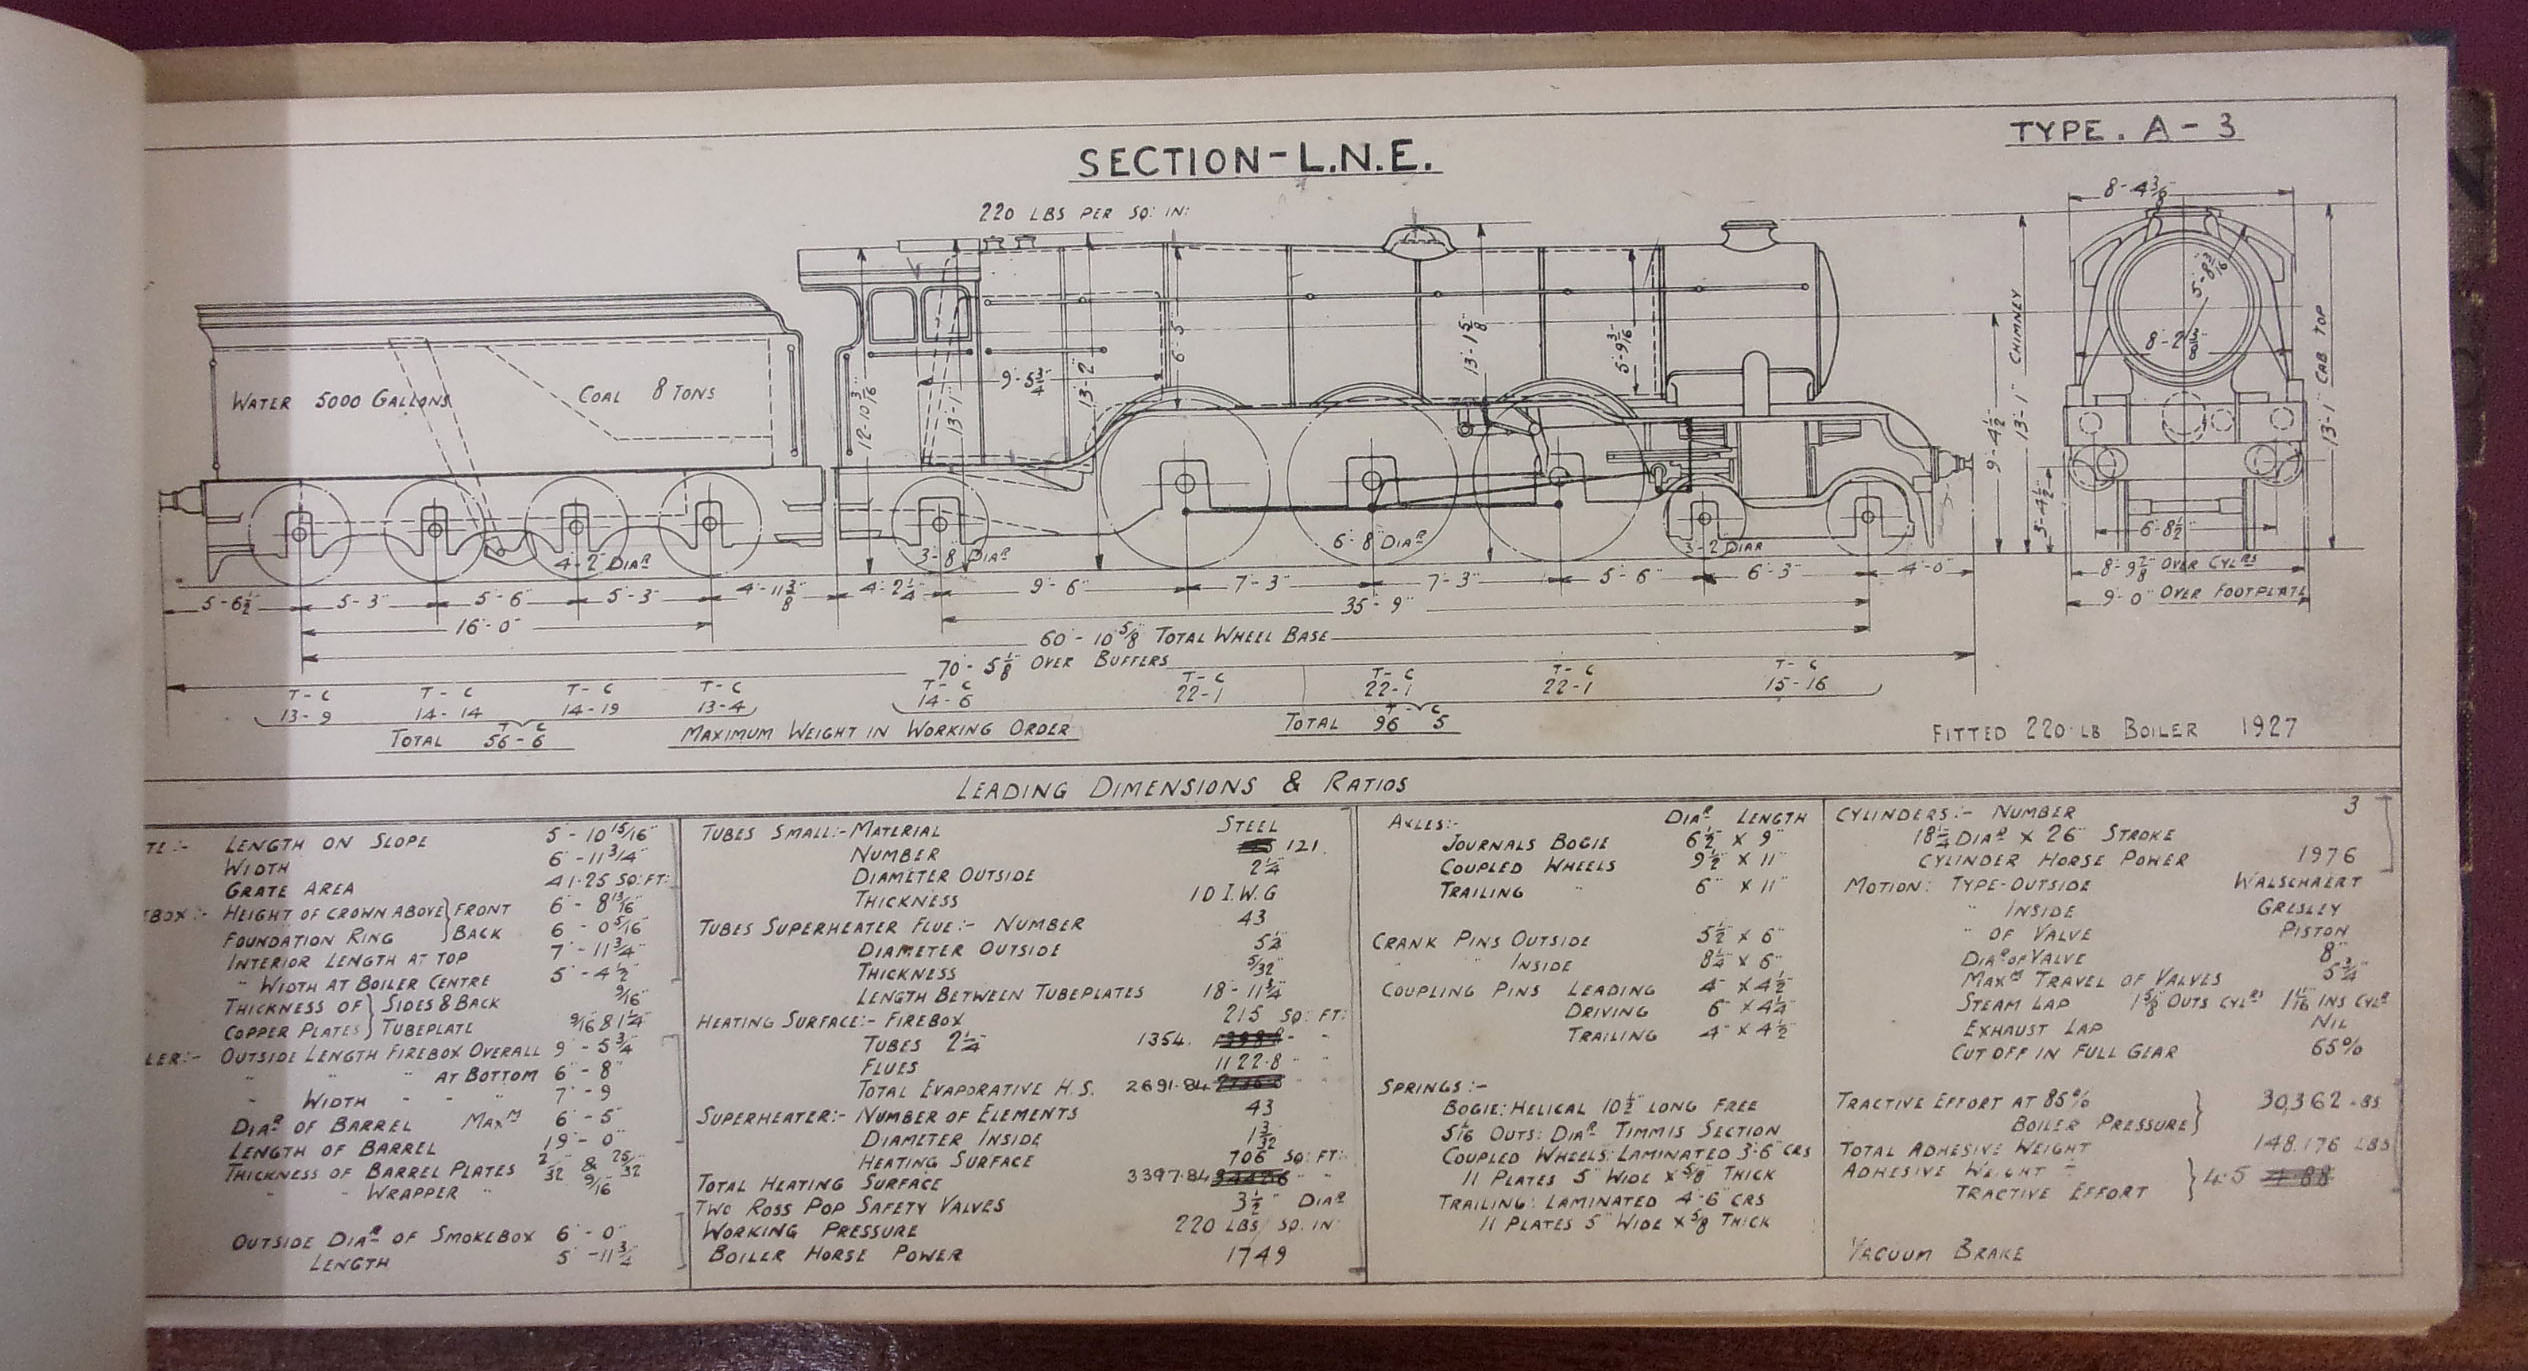 TYPE. A - 3
SECTION - L.N.E.
220 LBS PER SQ: IN:
8'- 4 3/8"
WATER 5000 GALLONS
COAL 8 TONS
12'-10 3/16"
13'-1"
9'-5 3/4"
13'-2"
6'-5"
13'-1 5/8"
5'-9 3/16"
9'-4 1/2"
13'-1" CHIMNEY
5'-8 3/16"
8'-2"
13'-1" CAB TOP
3'-4 1/2"
6'-8 1/2"
4'-2" DIAR
3'-8" DIAR
6'-8" DIAR
3'-2" DIAR
8'-9 7/8" OVER CYLRS
9'-0" OVER FOOTPLATE
5'-6 1/2" 5'-3" 5'-6" 5'-3" 4'-11 3/8" 4'-2 1/4" 9'-6" 7'-3" 7'-3" 5'-6" 6'-3" 4'-0"
16'-0"
35'-9"
60'-10 5/8" TOTAL WHEEL BASE
70'-5 1/8" OVER BUFFERS
T - C T - C T - C T - C T - C T - C T - C T - C T - C
13-9 14-14 14-19 13-4 14-6 22-1 22-1 22-1 15-16
T C
TOTAL 56-6
MAXIMUM WEIGHT IN WORKING ORDER
T - C
TOTAL 96 5
FITTED 220 LB BOILER 1927
LEADING DIMENSIONS & RATIOS
TE:- LENGTH ON SLOPE 5'-10 15/16"
WIDTH 6'-11 3/4"
GRATE AREA 41.25 SQ: FT:
BOX:- HEIGHT OF CROWN ABOVE } FRONT 6'-8 13/16"
FOUNDATION RING } BACK 6'-0 5/16"
INTERIOR LENGTH AT TOP 7'-11 3/4"
" WIDTH AT BOILER CENTRE 5'-4 1/2"
THICKNESS OF } SIDES & BACK 9/16"
COPPER PLATES } TUBEPLATE 9/16 & 1 1/4"
LER:- OUTSIDE LENGTH FIREBOX OVERALL 9'-5 3/4"
" " " AT BOTTOM 6'-8"
" WIDTH - - " 7'-9
DIAR OF BARREL MAXM 6'-5"
LENGTH OF BARREL 19'-0"
THICKNESS OF BARREL PLATES & 25/32"
" " WRAPPER " 9/16"
OUTSIDE DIAR OF SMOKEBOX 6'-0"
LENGTH 5'-11 3/4"
TUBES SMALL:- MATERIAL STEEL
NUMBER 121
DIAMETER OUTSIDE 2 1/4"
THICKNESS 10 I.W.G
TUBES SUPERHEATER FLUE:- NUMBER 43
DIAMETER OUTSIDE 5 1/4"
THICKNESS 5/32"
LENGTH BETWEEN TUBEPLATES 18'-11 3/4"
HEATING SURFACE:- FIREBOX 215 SQ: FT:
TUBES 2 1/4" 1354. " "
FLUES 1122.8 " "
TOTAL EVAPORATIVE H.S. 2691.84 " "
SUPERHEATER:- NUMBER OF ELEMENTS 43
DIAMETER INSIDE 1 3/32"
HEATING SURFACE 706 SQ: FT:
TOTAL HEATING SURFACE 3397.84 " "
TWO ROSS POP SAFETY VALVES 3 1/2" DIAR
WORKING PRESSURE 220 LBS/ SQ. IN.
BOILER HORSE POWER 1749
AXLES:- DIAR LENGTH
JOURNALS BOGIE 6 1/2" X 9"
COUPLED WHEELS 9 1/2" X 11"
TRAILING " 6" X 11"
CRANK PINS OUTSIDE 5 1/2" X 6"
" " INSIDE 8 1/4" X 6"
COUPLING PINS LEADING 4" X 4 1/2"
DRIVING 6" X 4 1/4"
TRAILING 4" X 4 1/2"
SPRINGS:-
BOGIE: HELICAL 10 1/2" LONG FREE
5 1/16 OUTS: DIAR TIMMIS SECTION
COUPLED WHEELS: LAMINATED 3'-6" CRS
11 PLATES 5" WIDE X 5/8" THICK
TRAILING: LAMINATED 4'-6" CRS
11 PLATES 5" WIDE X 5/8 THICK
CYLINDERS:- NUMBER 3
18 1/4" DIAR X 26" STROKE
CYLINDER HORSE POWER 1976
MOTION: TYPE-OUTSIDE WALSCHAERT
" INSIDE GRESLEY
" OF VALVE PISTON
DIAR OF VALVE 8"
MAXM TRAVEL OF VALVES 5 3/4"
STEAM LAP 1 5/8 OUTS CYLRS 1 11/16 INS CYLR
EXHAUST LAP NIL
CUT OFF IN FULL GEAR 65%
TRACTIVE EFFORT AT 85% } 30,362 LBS
BOILER PRESSURE }
TOTAL ADHESIVE WEIGHT 148.176 LBS
ADHESIVE WEIGHT ÷ } 4.5 4.88
TRACTIVE EFFORT }
VACUUM BRAKE